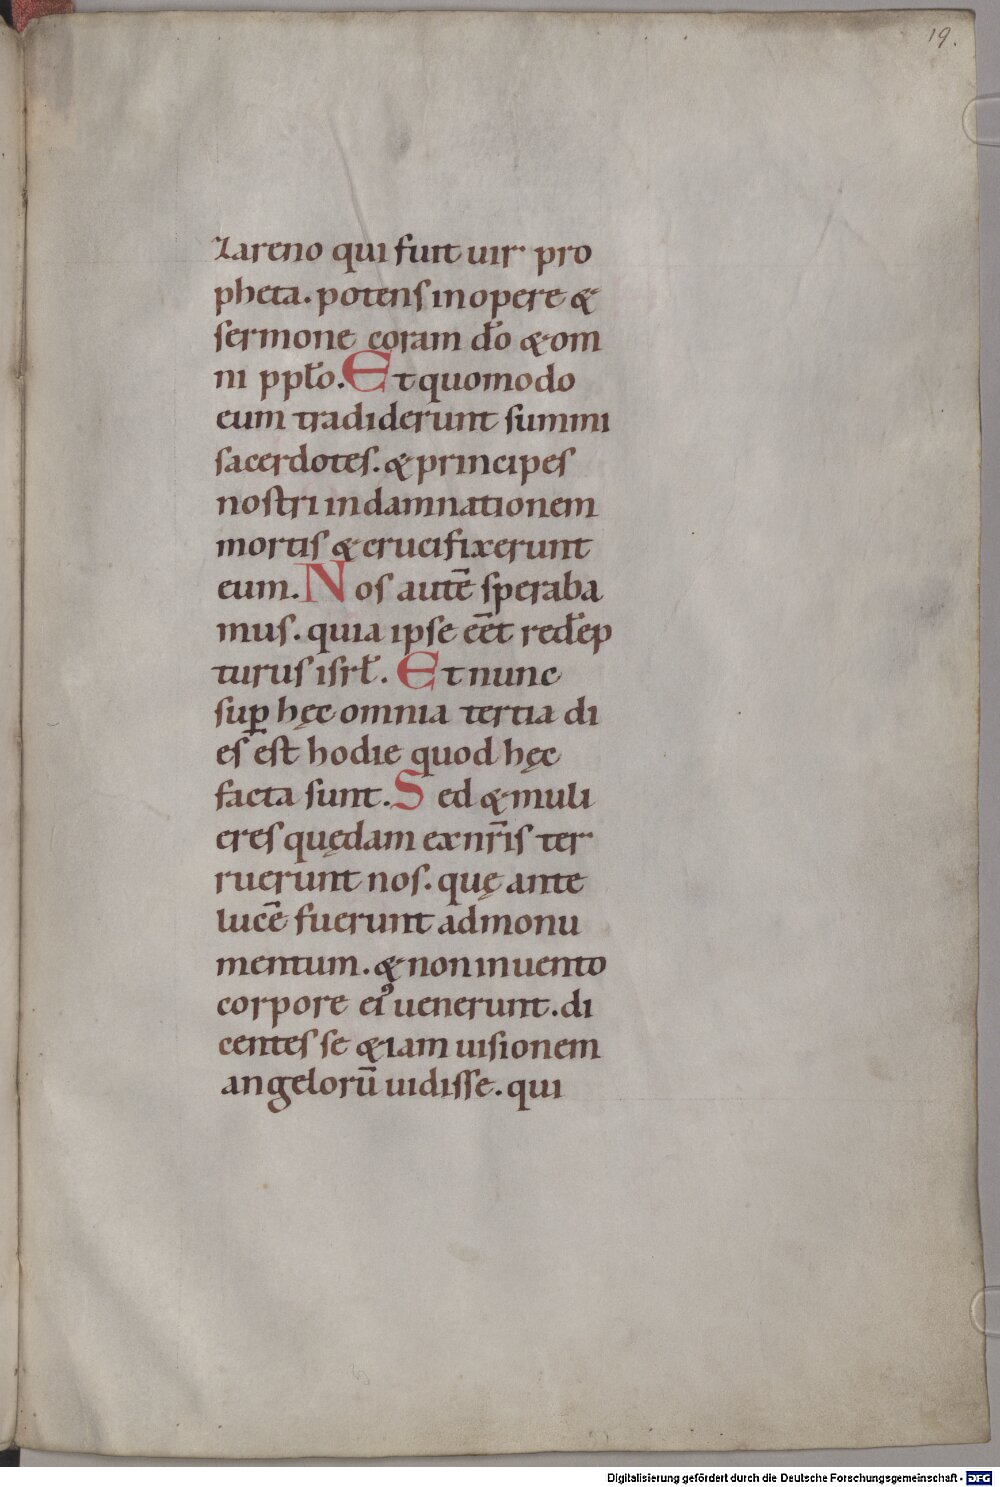 19.
zareno qui fuit uir pro
pheta. potens in opere &
sermone coram dõ & om
ni pplo. Et quomodo
eum tradiderunt summi
sacerdotes. & principes
nostri in damnationem
mortis & crucifixerunt
eum. Nos autē speraba
mus. quia ipse eēt redēp
turus isrł. Et nunc
suꝑ hęc omnia tertia di
es est hodie quod hęc
facta sunt. Sed & muli
eres quędam ex nr̄is ter
ruerunt nos. quę ante
lucē fuerunt ad monu
mentum. & non inuento
corpore eiꝰ uenerunt. di
centes se & iam uisionem
angelorū uidisse. qui
Digitalisierung gefördert durch die Deutsche Forschungsgemeinschaft - DFG